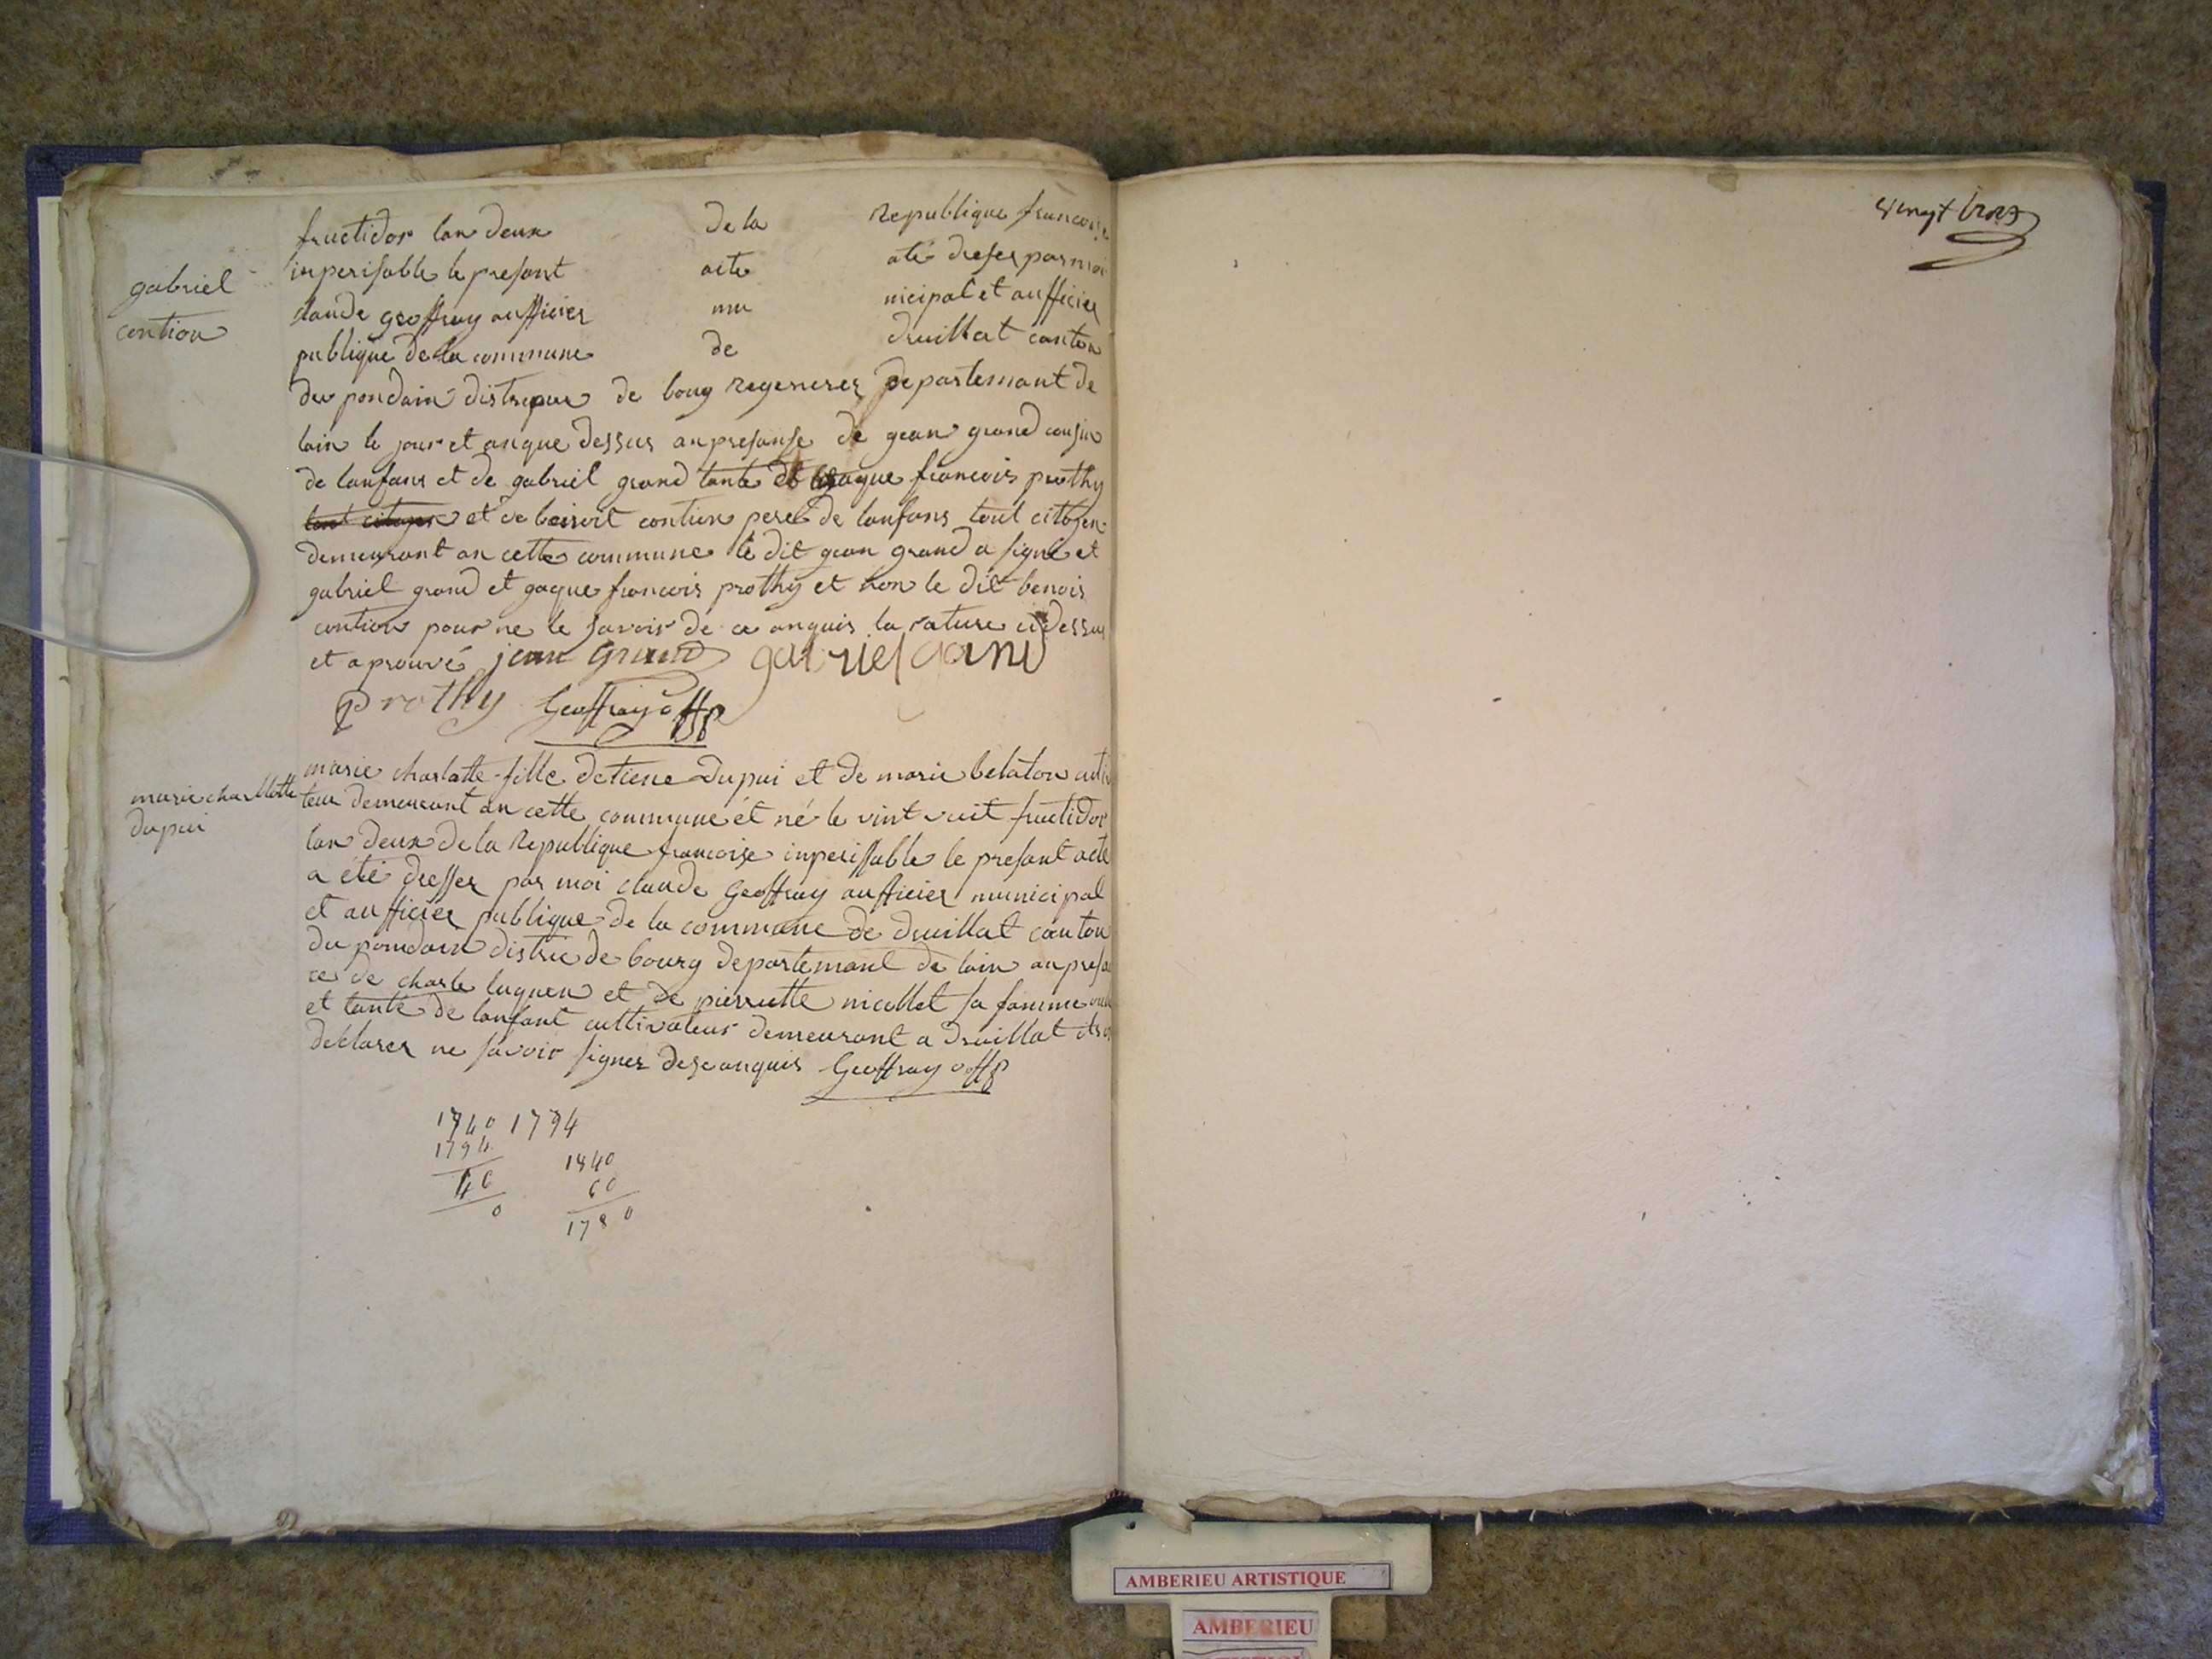 vingt trois
gabriel
contion
fructidor lan deux de la Republique francoise
inperisable le presant acte a été dreser par moi
claude geoffray aufficier mu nicipal et aufficier
publique de la commune de druillat canton
du pondain distrique de bourg regenerer departemant de
lain le jour et an que dessus an presanse de gean grand cousin
de lanfans et de gabriel grand tante et gaque francois prothy
tout citoyen et de benoit contion pere de lanfans tout citoyen
demeurant an cette commune le dit gean grand a signé et
gabriel grand et gaque francois prothy et non le dit benois
contion pour ne le savoir de ce anquis la rature ci dessus
et aprouvé jean Grand gabriel grand
prothy Geoffray offp
marie charllotte
dupui
marie charlatte fille detiene dupui et de marie belaton culti
teur demeurant an cette commune ét né le vint vuit fructidor
lan deux de la Republique francoise inperissable le presant acte
a été dresser par moi claude Geoffray aufficier municipal
et aufficier publique de la commune de druillat canton
du pondain distric de bourg departemant de lain an presa
ce de charle luquen et de pierrette nicollet sa famme
et tante de lanfant cultivateur demeurant a druillat
declarer ne savoir signer dese anquis Geoffray offp
1840 1794
1794
46
0
1840
60
1780
AMBERIEU ARTISTIQUE
AMBERIEU